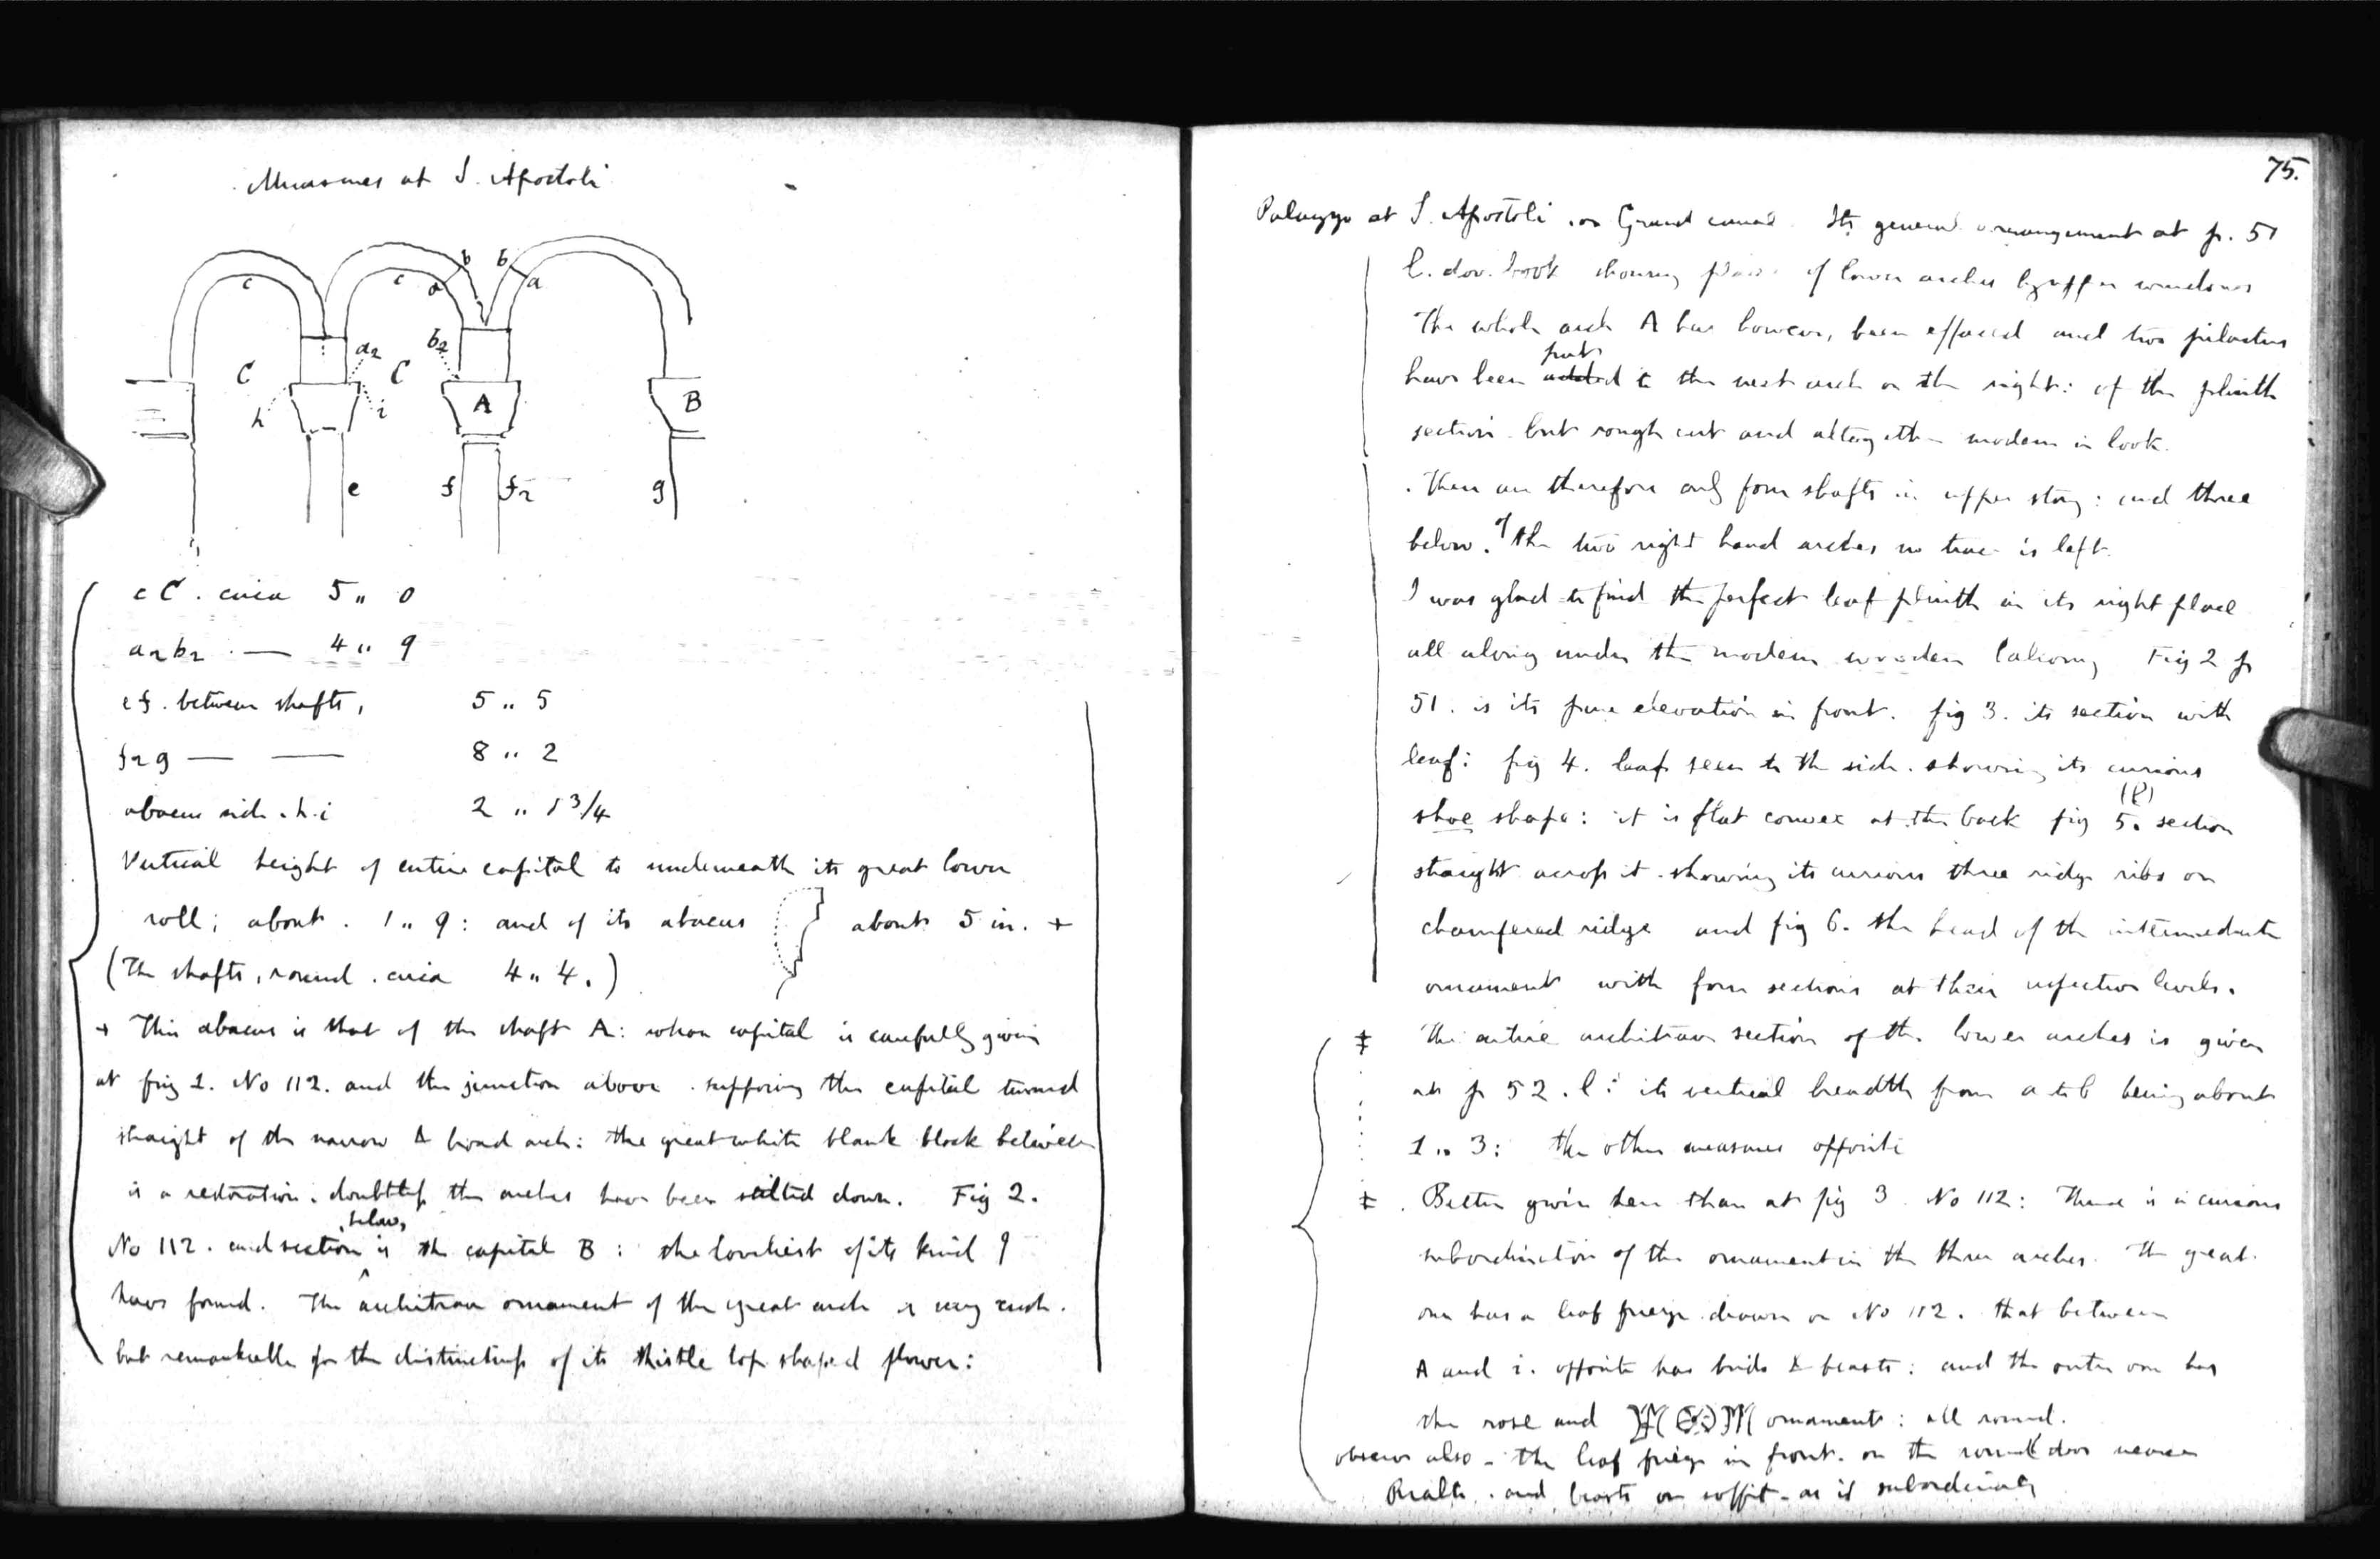 Measures at S. Apostoli
c c b b a a
C a2 C b2
h i A B
e f f2 g
c C . circa 5 ,, 0
a2 b2 . — 4 ,, 9
e f . between shafts, 5 ,, 5
f2 g — — 8 ,, 2
abacus side . h . i 2 ,, 1 3/4
Vertical height of entire capital to underneath its great lower
roll; about . 1 ,, 9 : and of its abacus about 5 in. +
(The shafts, round . circa 4 ,, 4 .)
+ This abacus is that of the shaft A: whose capital is carefully given
at fig 1. No 112. and the junction above . supposing the capital turned
straight of the narrow & broad arch: the great white blank block between
is a restoration . doubtless the arches have been stilted down. Fig 2.
No 112 . and section below, is the capital B : the loveliest of its kind I
have found. The architrave ornament of the great arch is very rich.
but remarkable for the distinctness of its thistle top shaped flower:
75.
Palazzo at S. Apostoli . on Grand canal. Its general arrangement at p. 51
l. dov. book showing place of lower arches by upper windows
The whole arch A has however, been effaced and two pilasters
have been added put to the next arch on the right: of the plinth
section but rough cut and altogether modern in look.
. There are therefore only four shafts in upper story : and three
below. Of the two right hand arches no trace is left.
I was glad to find the perfect leaf plinth in its right place
all along under the modern wooden balcony Fig 2 p
51 . is its pure elevation in front. fig 3. its section with
leaf: fig 4. leaf seen to the side . showing its curious
shoe shape: it is flat convex at the back fig 5. section
straight across it . showing its curious three ridge ribs on
chamfered ridge and fig 6. the head of the intermediate
ornament with four sections at their respective levels.
‡ The entire architrave section of the lower arches is given
at p 52 . l : its vertical breadth from a to b being about
1 ,, 3 : the other measures opposite
‡ . Better given here than at fig 3 No 112 : There is a curious
subordination of the ornament in the three arches. The great
one has a leaf frieze drawn on No 112 . that between
A and i. opposite has birds & beasts : and the outer one has
the rose and ornament : all round.
observe also - the leaf frieze in front . on the round door nearer
Rialto . and beasts on soffit - as if subordinate